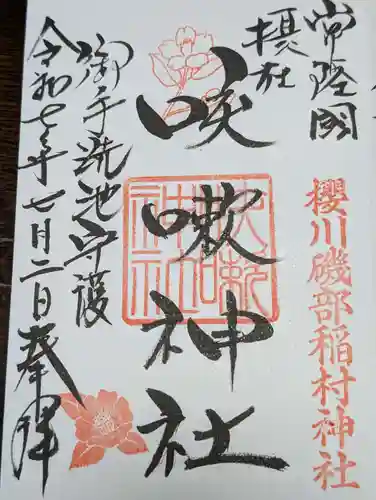 常陸國
摂社
櫻川磯部稲村神社
咲嗽神社
御手洗池守護
令和七年七月二日奉拝